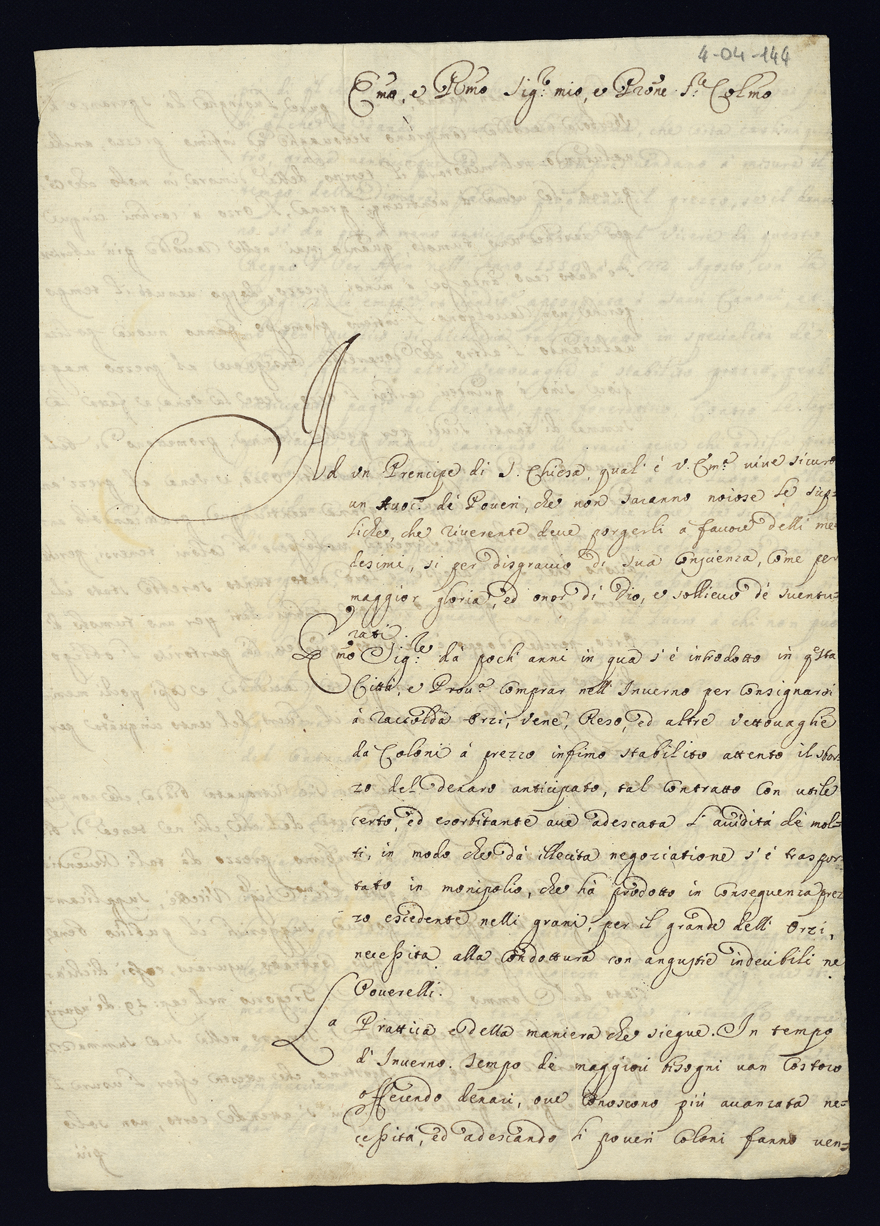 4-04-144
Em̃o, e Rm̃o Sig.r mio, e Prõne S.re Colmo
Ad vn Prencipe di S. Chiesa, qual' è V. Em.a viue sicuro
un Auoc.o de Poueri, che non saranno noiose le sup-
liche, che riuerente deue porgerli à fauore delli me-
desimi, si per disgrauio di sua Conscienza, Come per
maggior gloria, ed onor di Dio, e sollieuo de suentu-
rati.
Em̃o Sig.re da pochi anni in qua s'è introdotto in q.sta
Città, e Prou.a Comprar nell'Inverno per Consignarsi
à raccolta Orzi, Vene, Reso, ed altre Vettouaglie
da Coloni à prezzo infimo stabilito attento il sbor-
zo del denaro anticipato, tal Contratto Con utile
certo, ed esorbitante aue adescata l'auidità de mol-
ti, in modo che da illecita negoziatione s'è traspor-
tato in monipolio, che hà prodotto in Conseguenza prez-
zo escedente nelli grani, per il grande delli Orzi,
necessita alla Condottura con angustie indecibili ne
Pouerelli.
La Prattica è della maniera che siegue. In tempo
d'Inuerno. Tempo de maggiori bisogni uan Costoro
offerendo denari, oue Conoscono più auanzata ne-
cessità, ed adescando li poueri Coloni fanno ven-